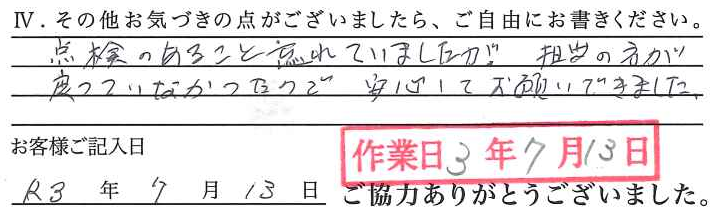 Ⅳ．その他お気づきの点がございましたら、ご自由にお書きください。
点検のあること忘れていましたが 担当の方が
変っていなかったので 安心してお願いできました。
お客様ご記入日
作業日 3 年 7 月 13 日
R3 年 7 月 13 日 ご協力ありがとうございました。